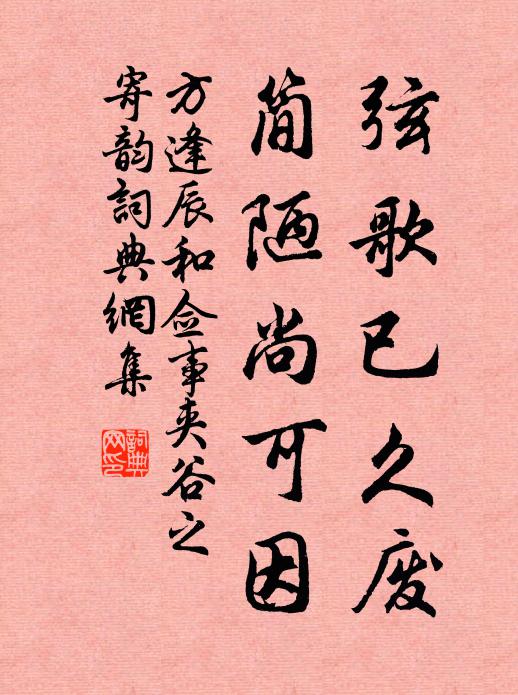 弦歌已久废
简陋尚可因
方逢辰和佥事夹谷之
寄韵词典網集
詞典網印